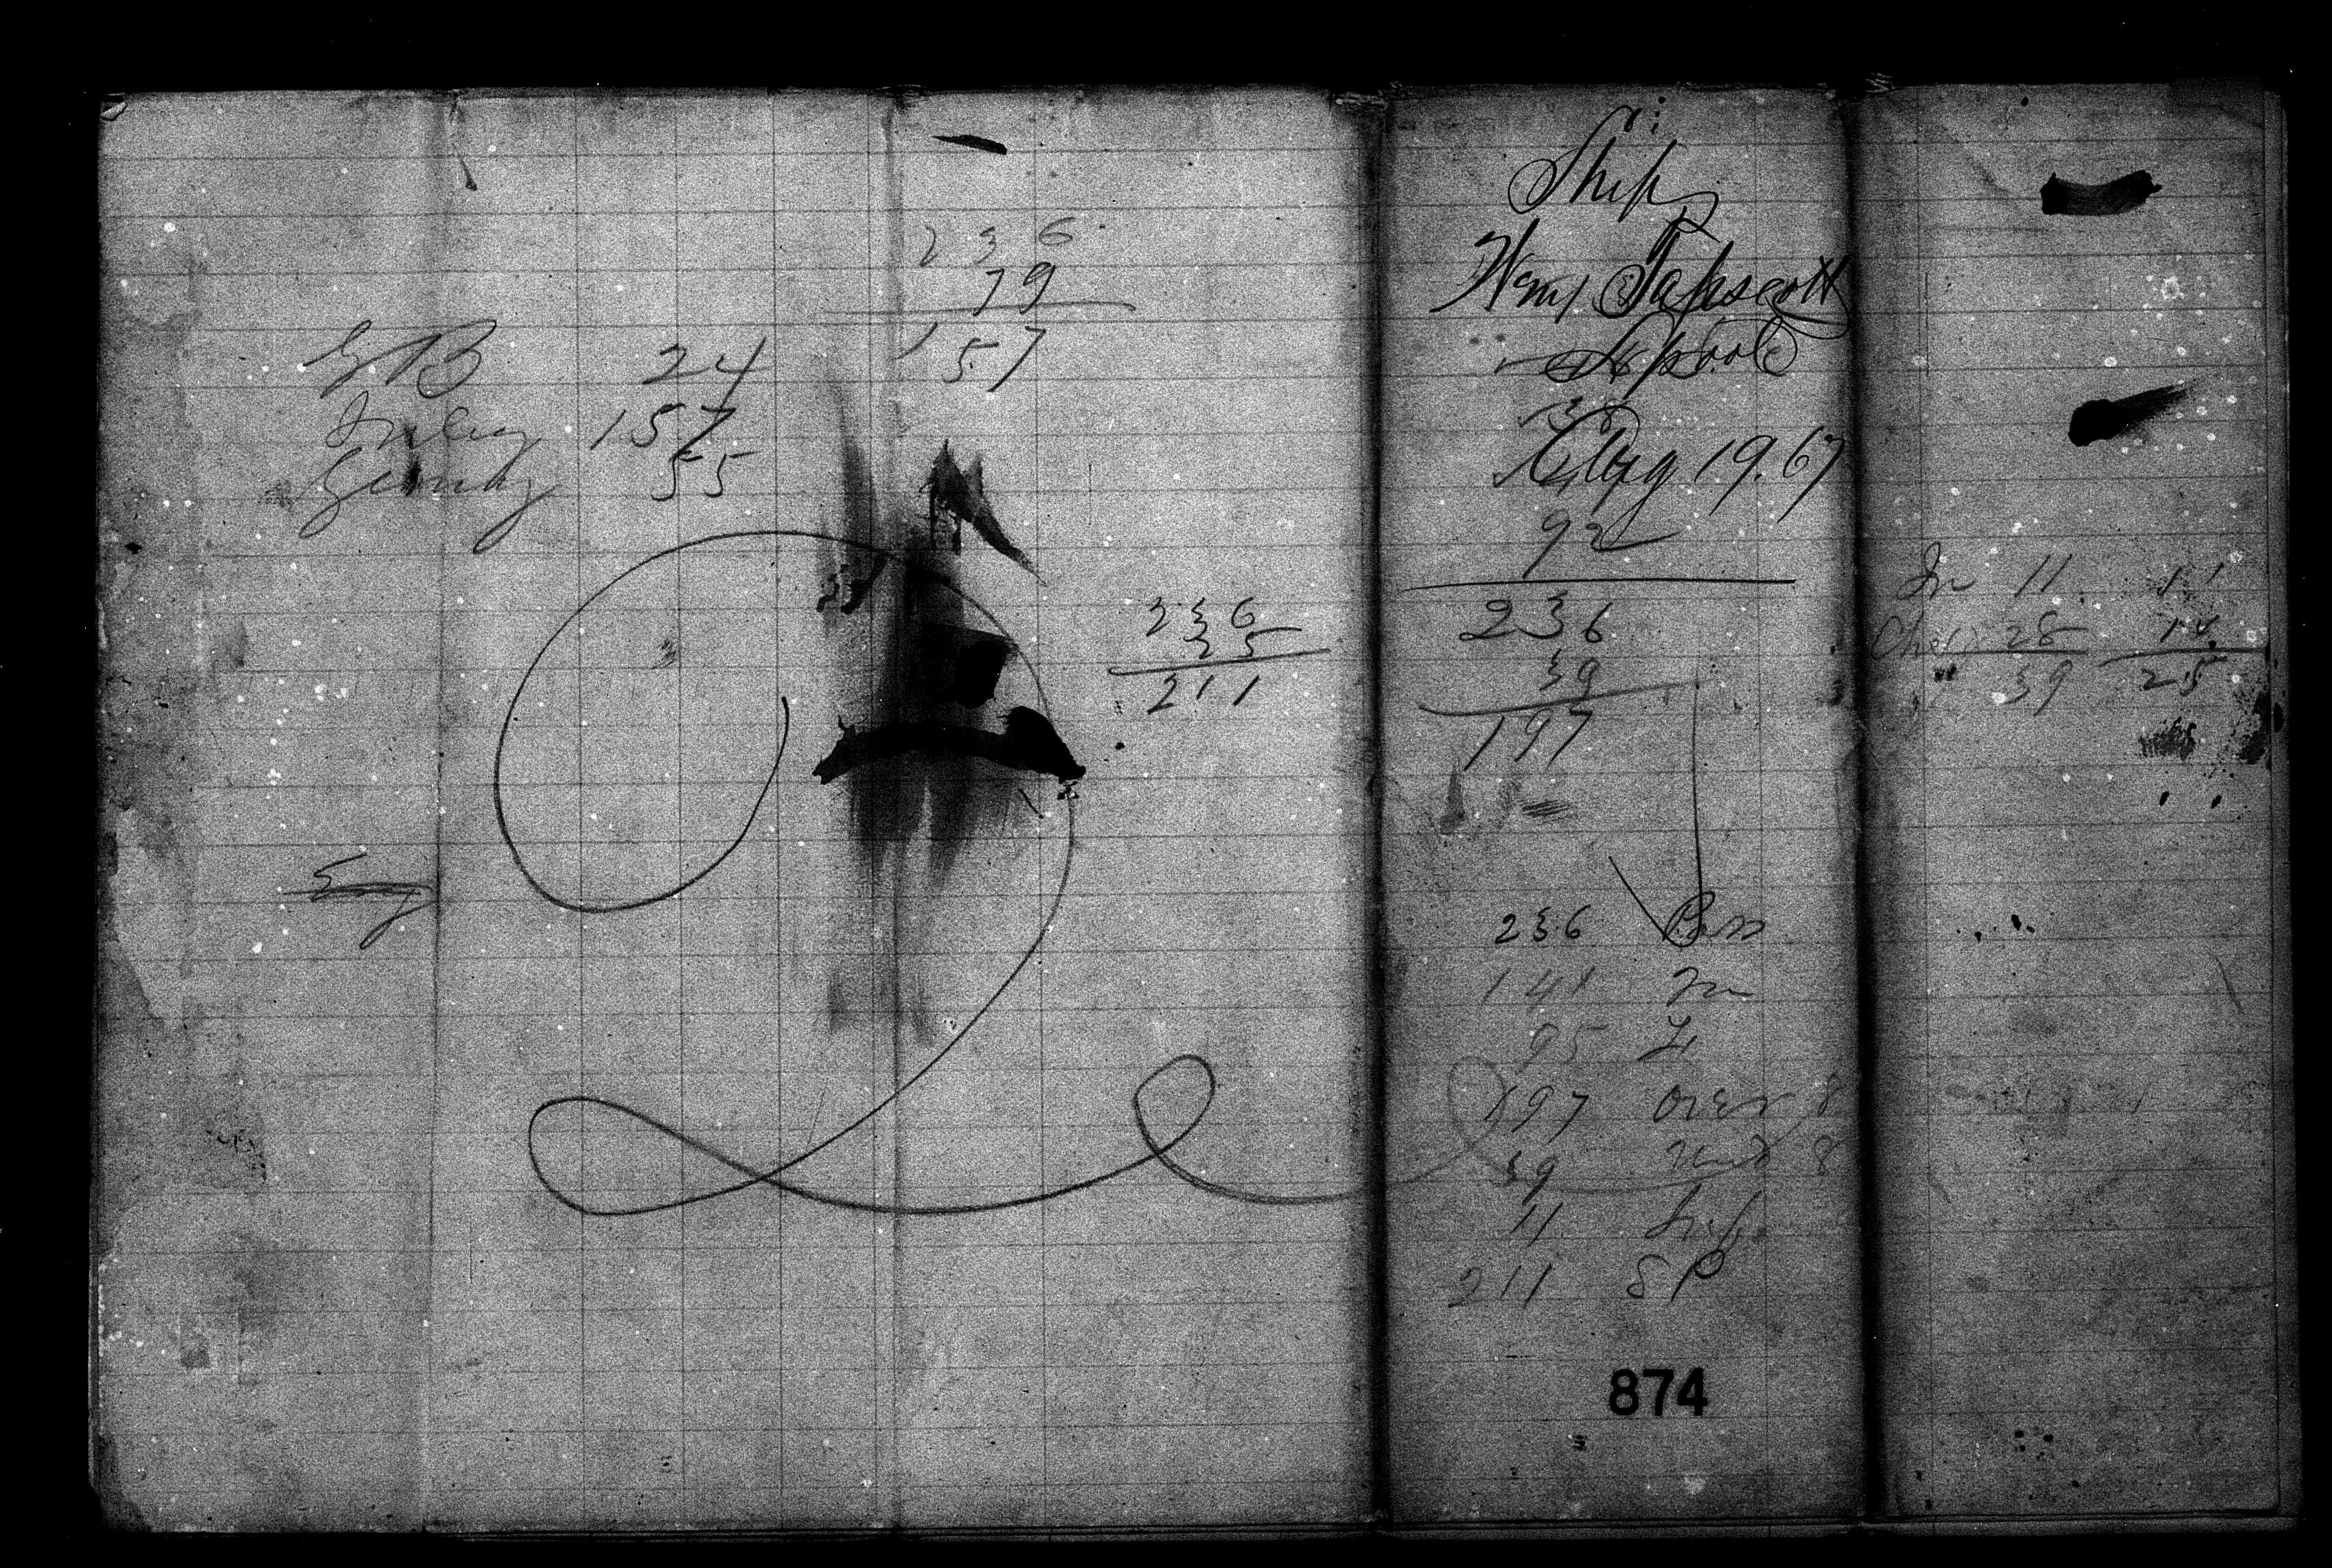 236
79
157
GB 24
Irelay 157
Germany 55
236
25
211
Eng
Ship
Wm Tapscott
Lpool
Aug 19. 67
92
236
39
197
236 Pass
141 M
95 F
197 over 8
39 und 8
11 Inf
211 SP
874
In 11
Chd 28
39
11
14
25